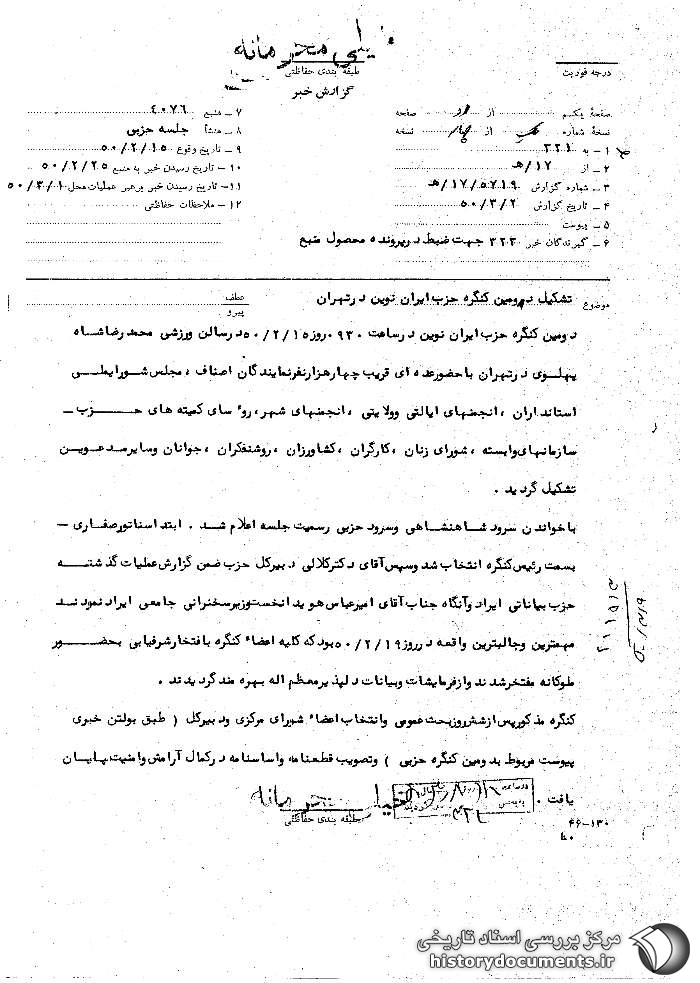 خیلی محرمانه
طبقه بندی حفاظتی
درجه فوریت
گزارش خبر
صفحهٔ یکم از دو صفحه
نسخهٔ شماره یک از چهار نسخه
۱ - به ۳۲۱
۲ - از ۱۷/هـ
۳ - شماره گزارش ۱۷/۵۷۱۹/هـ
۴ - تاریخ گزارش ۵۰/۳/۲
۵ - پیوست
۶ - گیرندگان خبر ۳۲۳ جهت ضبط در پرونده محصول منبع
۷ - منبع ۴۰۷۶
۸ - منشأ جلسه حزبی
۹ - تاریخ وقوع ۵۰/۲/۱۵
۱۰ - تاریخ رسیدن خبر به منبع ۵۰/۲/۲۵
۱۱ - تاریخ رسیدن خبر برهبر عملیات محل ۵۰/۳/۱
۱۲ - ملاحظات حفاظتی
موضوع تشکیل دومین کنگره حزب ایران نوین در تهران
عطف
پیرو
دومین کنگره حزب ایران نوین در ساعت ۰۹۳۰ روز ۵۰/۲/۱۵ در سالن ورزشی محمد رضا شاه
پهلوی در تهران با حضور عده ای قریب چهار هزار نفر نمایندگان اصناف ، مجلس شورایملی
استانداران ، انجمنهای ایالتی وولایتی ، انجمنهای شهر، روسای کمیته های حزب –
سازمانهای وابسته ، شورای زنان ، کارگران ، کشاورزان ، روشنفکران ، جوانان وسایر مدعوین
تشکیل گردید .
با خواندن سرود شاهنشاهی وسرود حزبی رسمیت جلسه اعلام شد . ابتدا سناتور صفاری –
بسمت رئیس کنگره انتخاب شد وسپس آقای دکتر کلالی دبیرکل حزب ضمن گزارش عملیات گذشته
حزب بیاناتی ایراد وآنگاه جناب آقای امیرعباس هویدا نخست وزیر سخنرانی جامعی ایراد نمودند
مهمترین وجالبترین واقعه در روز ۵۰/۲/۱۹ بود که کلیه اعضاء کنگره با افتخار شرفیابی بحضور
ملوکانه مفتخر شدند واز فرمایشات وبیانات دلپذیر معظم اله بهره مند گردیدند .
کنگره مذکور پس از شش روز بحث عمومی وانتخاب اعضاء شورای مرکزی ودبیرکل ( طبق بولتن خبری
پیوست مربوط بدومین کنگره حزبی ) وتصویب قطعنامه واساسنامه در کمال آرامش وامنیت پایان
یافت .
خیلی محرمانه
طبقه بندی حفاظتی
۴۶-۱۳۰
مرکز بررسی اسناد تاریخی
historydocuments.ir